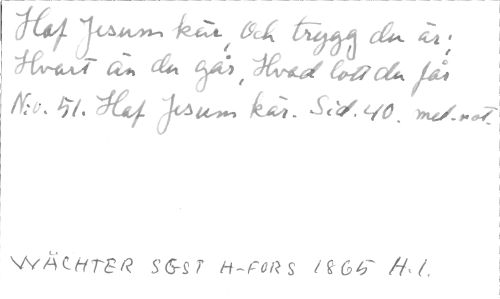 Haf Jesum kär, Och trygg du är;
Hvart än du går, Hvad lott du får
N:o. 51. Haf Jesum kär. Sid. 40. mel. not.
WÄCHTER SGST H-FORS 1865 H.1.